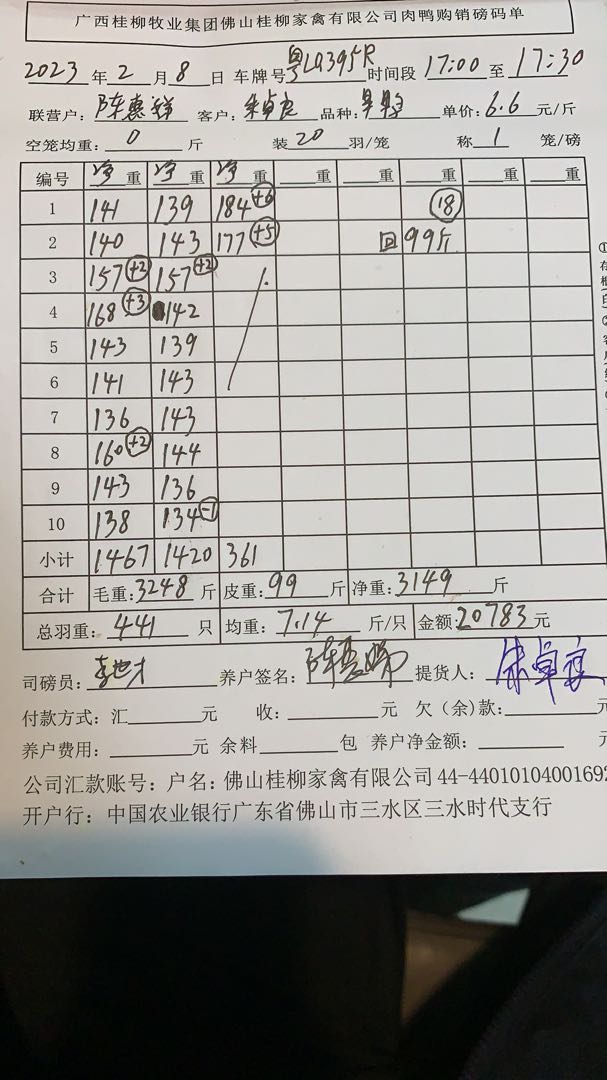 广西桂柳牧业集团佛山桂柳家禽有限公司肉鸭购销磅码单
2023年2月8日 车牌号粤LQ395R时间段17:00至17:30
联营户：陈惠 客户：卓良 品种： 单价：6.6元/斤
空笼均重：0斤 装20羽/笼 称1笼/磅
编号 净重 净重 净重 重 重 重 重 重
1 141 139 184+6 18
2 140 143 177+5 回 99斤
3 157+2 157+2
4 168+3 142
5 143 139
6 141 143
7 136 143
8 160+2 144
9 143 136
10 138 134-1
小计 1467 1420 361
合计 毛重：3248斤 皮重：99斤 净重：3149斤
总羽重：441只 均重：7.14斤/只 金额：20783元
司磅员：李世才 养户签名：陈惠 提货人：卓良
付款方式：汇 元 收： 元 欠（余）款： 元
养户费用： 元 余料 包 养户净金额： 元
公司汇款账号：户名：佛山桂柳家禽有限公司44-44010104001692
开户行：中国农业银行广东省佛山市三水区三水时代支行